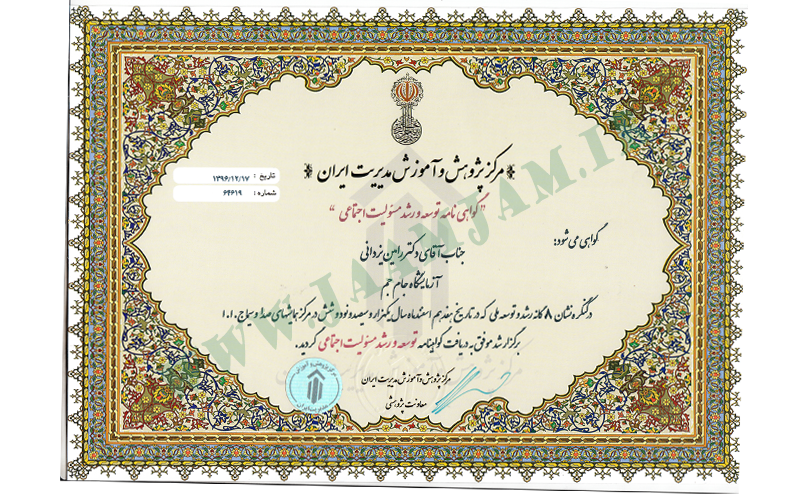 مرکز پژوهش و آموزش مدیریت ایران
تاریخ : ۱۳۹۶/۱۲/۱۷
شماره : ۶۴۶۱۹
"گواهی نامه توسعه و رشد مسئولیت اجتماعی"
گواهی می شود:
جناب آقای دکتر رامین یزدانی
آزمایشگاه جام جم
در کنگره نشان ۸ گانه رشد و توسعه ملی که در تاریخ هفدهم اسفند ماه سال یکهزار و سیصد و نود و شش در مرکز همایشهای صدا و سیما ج.ا.ا
برگزار شد موفق به دریافت گواهینامه توسعه و رشد مسئولیت اجتماعی گردید.
مرکز پژوهش و آموزش مدیریت ایران
معاونت پژوهشی
WWW.JAAMJAM.IR